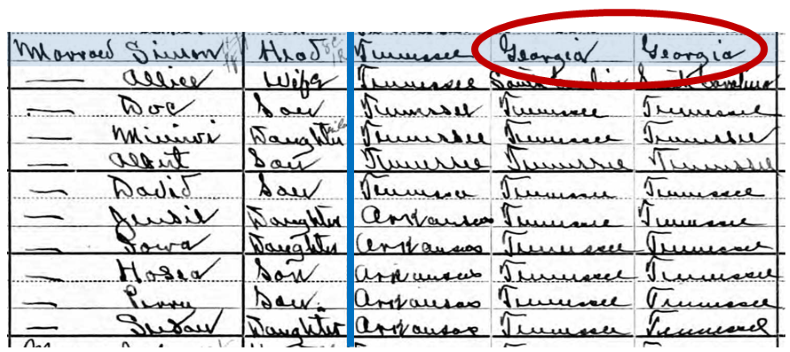 Simon Head Tennessee Georgia Georgia
— Allice Wife Tennessee South Carolina South Carolina
— Doc Son Tennessee Tennessee Tennessee
— Daughter Tennessee Tennessee Tennessee
— Albert Son Tennessee Tennessee Tennessee
— David Son Tennessee Tennessee Tennessee
— Jensie Daughter Arkansas Tennessee Tennessee
— Iowa Daughter Arkansas Tennessee Tennessee
— Hosea Son Arkansas Tennessee Tennessee
— Perry Son Arkansas Tennessee Tennessee
— Susan Daughter Arkansas Tennessee Tennessee